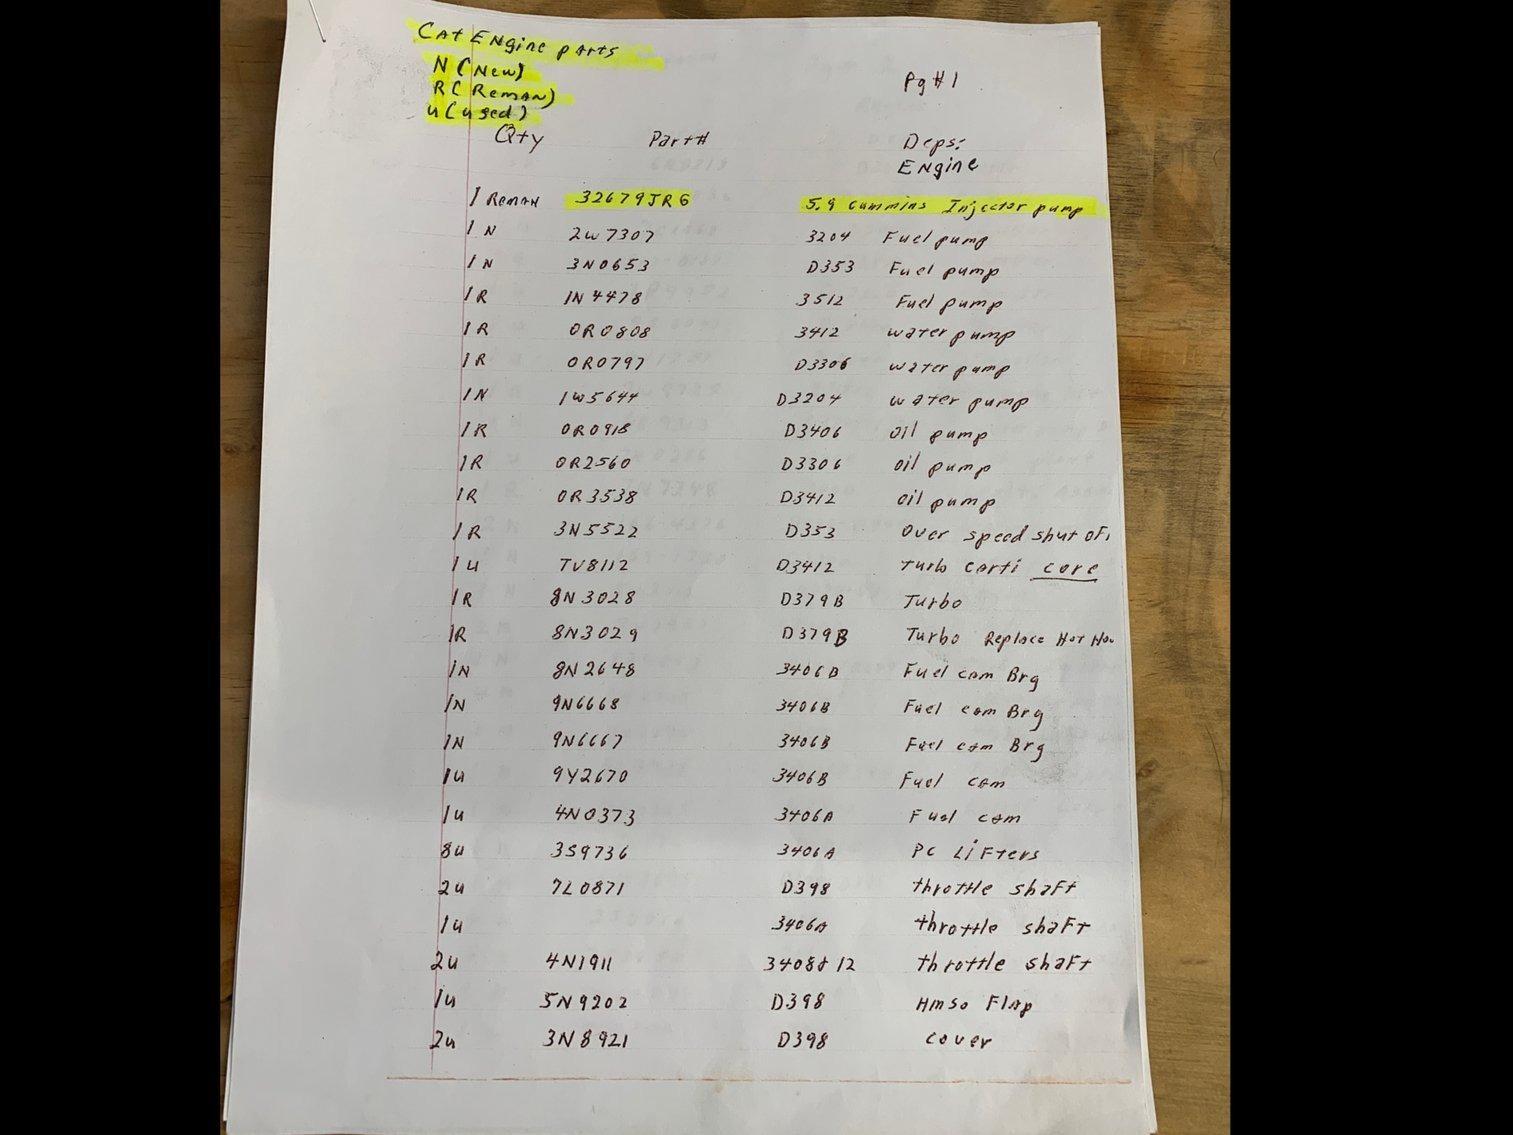 Cat Engine parts
N (New)
R (Reman)
U (used)
Pg #1
Qty Part# Deps:
Engine
1 Reman 32679JRG 5.9 Cummins Injector pump
1 N 2W7307 3204 Fuel pump
1 N 3N0653 D353 Fuel pump
1 R 1N4478 3512 Fuel pump
1 R 0R0808 3412 water pump
1 R 0R0797 D3306 water pump
1 N 1W5644 D3204 water pump
1 R 0R0918 D3406 oil pump
1 R 0R2560 D3306 oil pump
1 R 0R3538 D3412 oil pump
1 R 3N5522 D353 Over speed shut of
1 U TV8112 D3412 Turbo carti core
1 R 8N3028 D379B Turbo
1 R 8N3029 D379B Turbo Replace Hot Hou
1 N 8N2648 3406B Fuel cam Brg
1 N 9N6668 3406B Fuel cam Brg
1 N 9N6667 3406B Fuel cam Brg
1 U 9Y2670 3406B Fuel cam
1 U 4N0373 3406A Fuel cam
8 U 3S9736 3406A PC Lifters
2 U 7L0871 D398 throttle shaft
1 U 3406A throttle shaft
2 U 4N1911 3408&12 throttle shaft
1 U 5N9202 D398 Hmso Flap
2 U 3N8921 D398 cover